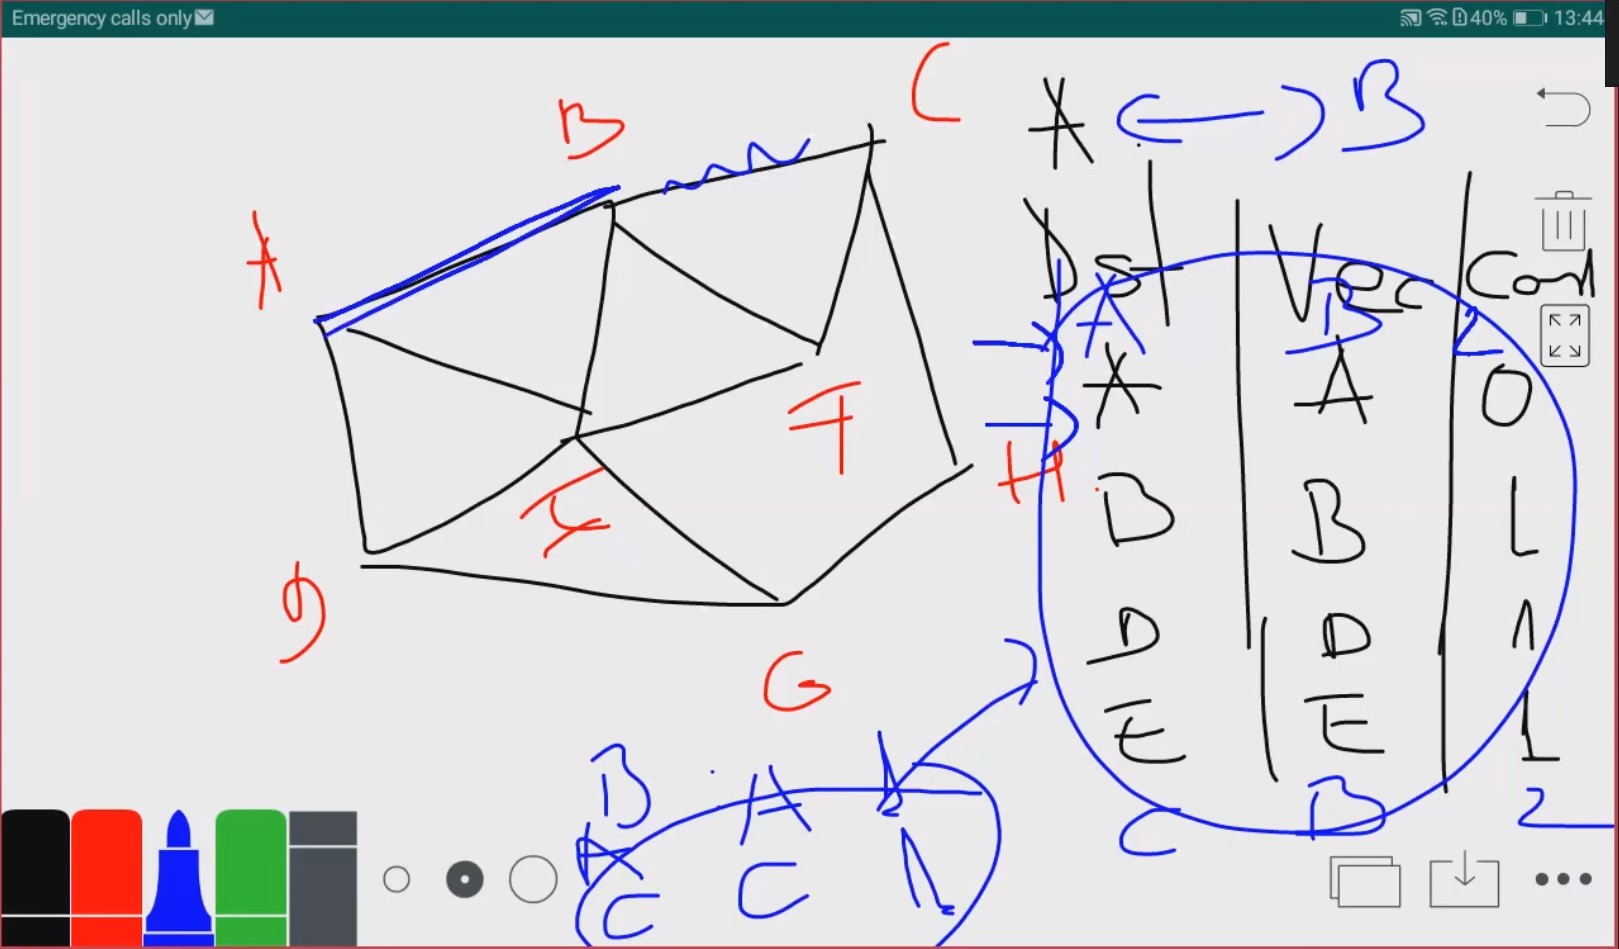 Emergency calls only
40% 13:44
C
B
A
F
H
D
G
A B
Dst Vec Cost
A B 2
A A 0
B B 1
D D 1
E E 1
C B 2
B A 1
A
C C 1